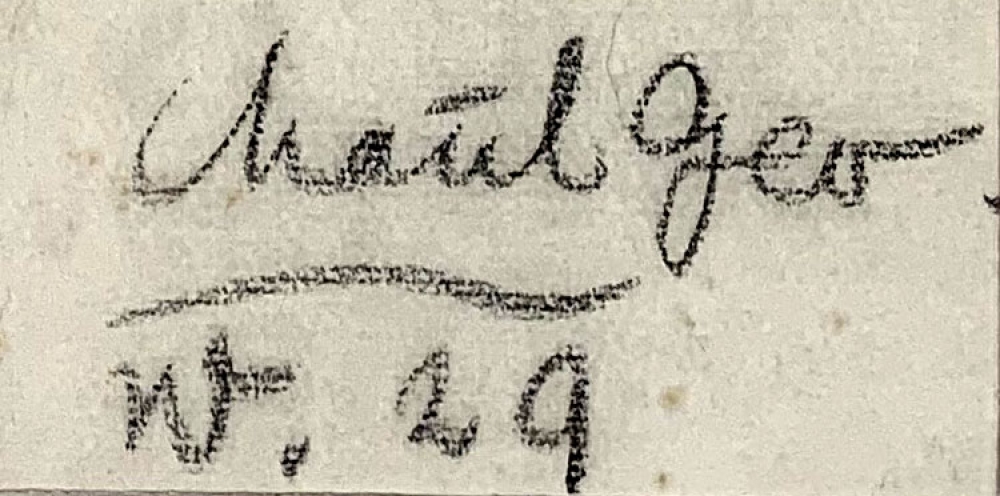 Maul Geo
Nr. 29